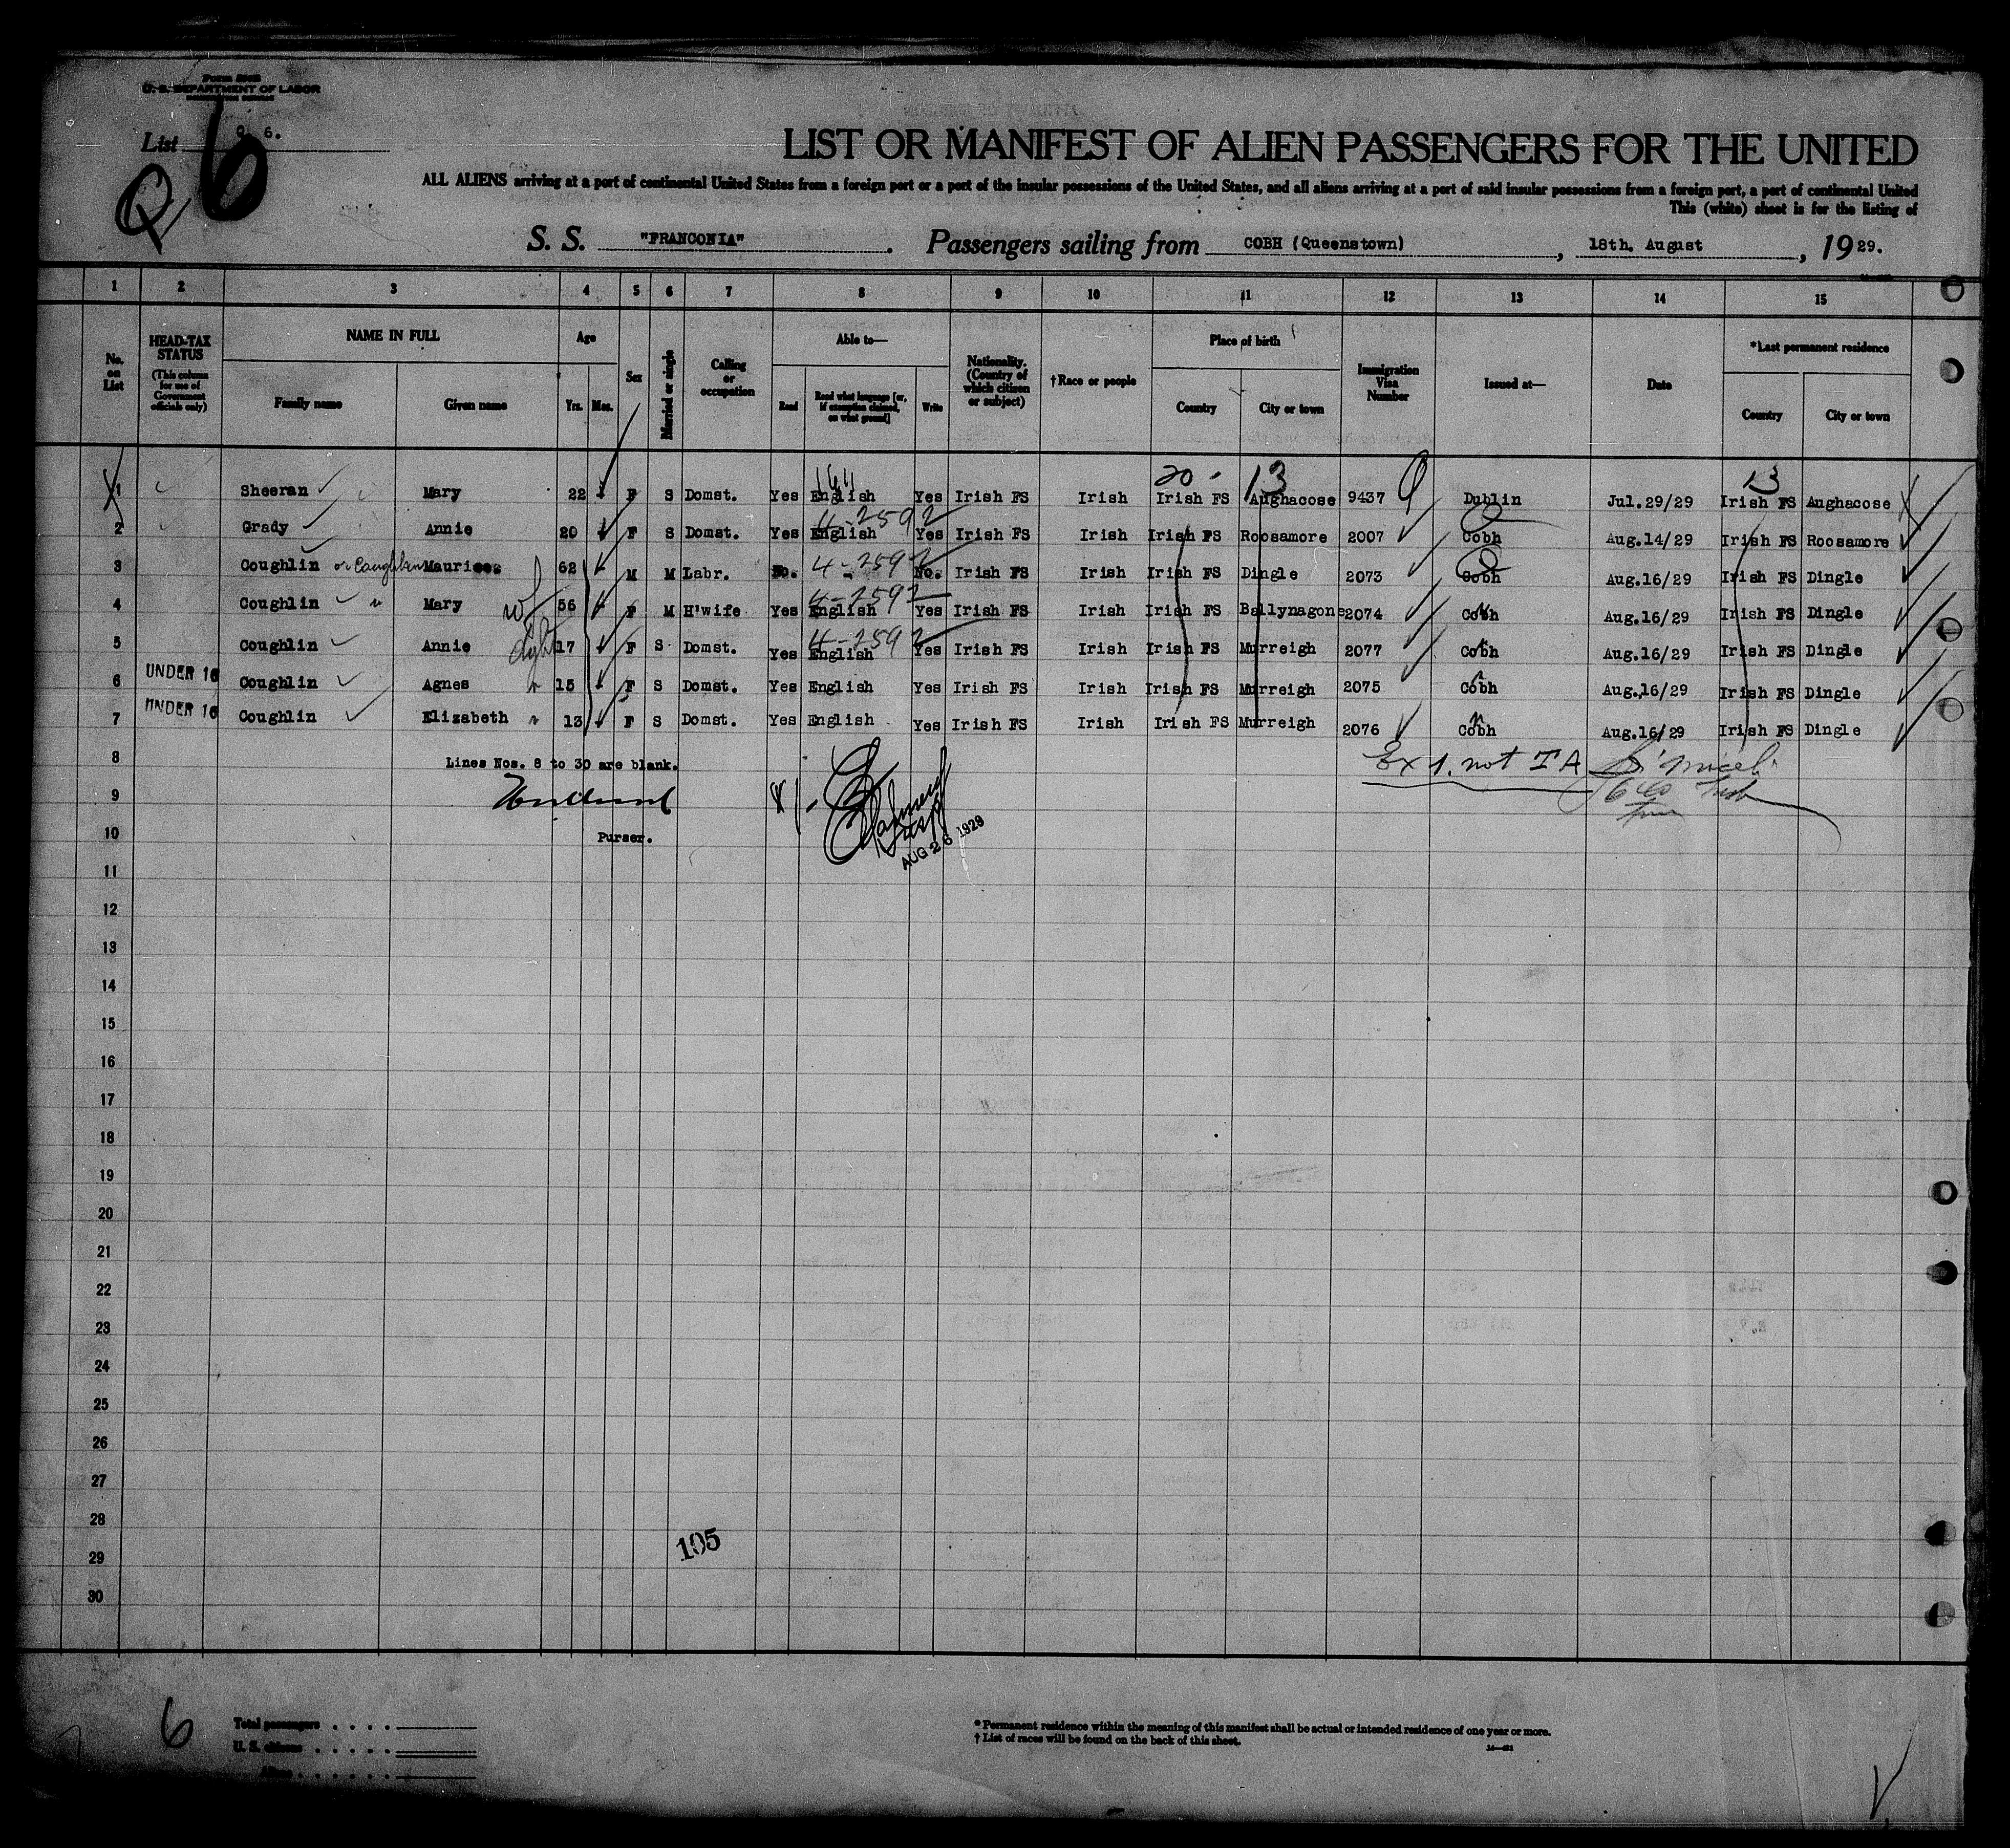 U. S. DEPARTMENT OF LABOR
List Q. 6.
Q 6
LIST OR MANIFEST OF ALIEN PASSENGERS FOR THE UNITED
ALL ALIENS arriving at a port of continental United States from a foreign port or a port of the insular possessions of the United States, and all aliens arriving at a port of said insular possessions from a foreign port, a port of continental United
This (white) sheet is for the listing of
S. S. "FRANCONIA". Passengers sailing from COBH (Queenstown), 18th. August, 1929.
1 2 3 4 5 6 7 8 9 10 11 12 13 14 15
No. on List
HEAD-TAX STATUS (This column for use of Government officials only)
NAME IN FULL Family name Given name
Age Yrs. Mos.
Sex
Married or single
Calling or occupation
Able to— Read Read what language [or, if exemption claimed, on what ground] Write
Nationality. (Country of which citizen or subject)
†Race or people
Place of birth Country City or town
Immigration Visa Number
Issued at—
Date
*Last permanent residence Country City or town
20 - 13 13
1 Sheeran Mary 22 F S Domst. Yes English Yes Irish FS Irish Irish FS Aughacose 9437 Dublin Jul.29/29 Irish FS Aughacose
4-2592
2 Grady Annie 20 F S Domst. Yes English Yes Irish FS Irish Irish FS Roosamore 2007 Cobh Aug.14/29 Irish FS Roosamore
3 Coughlin or Caughlan Maurice 62 M M Labr. No. 4-2592 No. Irish FS Irish Irish FS Dingle 2073 Cobh Aug.16/29 Irish FS Dingle
4-2592
4 Coughlin " Mary wf 56 F M H'wife Yes English Yes Irish FS Irish Irish FS Ballynagone 2074 Cobh Aug.16/29 Irish FS Dingle
4-2592
5 Coughlin Annie dght 17 F S Domst. Yes English Yes Irish FS Irish Irish FS Murreigh 2077 Cobh Aug.16/29 Irish FS Dingle
6 UNDER 16 Coughlin Agnes " 15 F S Domst. Yes English Yes Irish FS Irish Irish FS Murreigh 2075 Cobh Aug.16/29 Irish FS Dingle
7 UNDER 16 Coughlin Elizabeth " 13 F S Domst. Yes English Yes Irish FS Irish Irish FS Murreigh 2076 Cobh Aug.16/29 Irish FS Dingle
8 Lines Nos. 8 to 30 are blank. Ex 1. not T A
9
10 Purser. AUG 26 1929
11
12
13
14
15
16
17
18
19
20
21
22
23
24
25
26
27
28
105
29
30
6
Total passengers
U. S. citizens
Aliens
* Permanent residence within the meaning of this manifest shall be actual or intended residence of one year or more.
† List of races will be found on the back of this sheet.